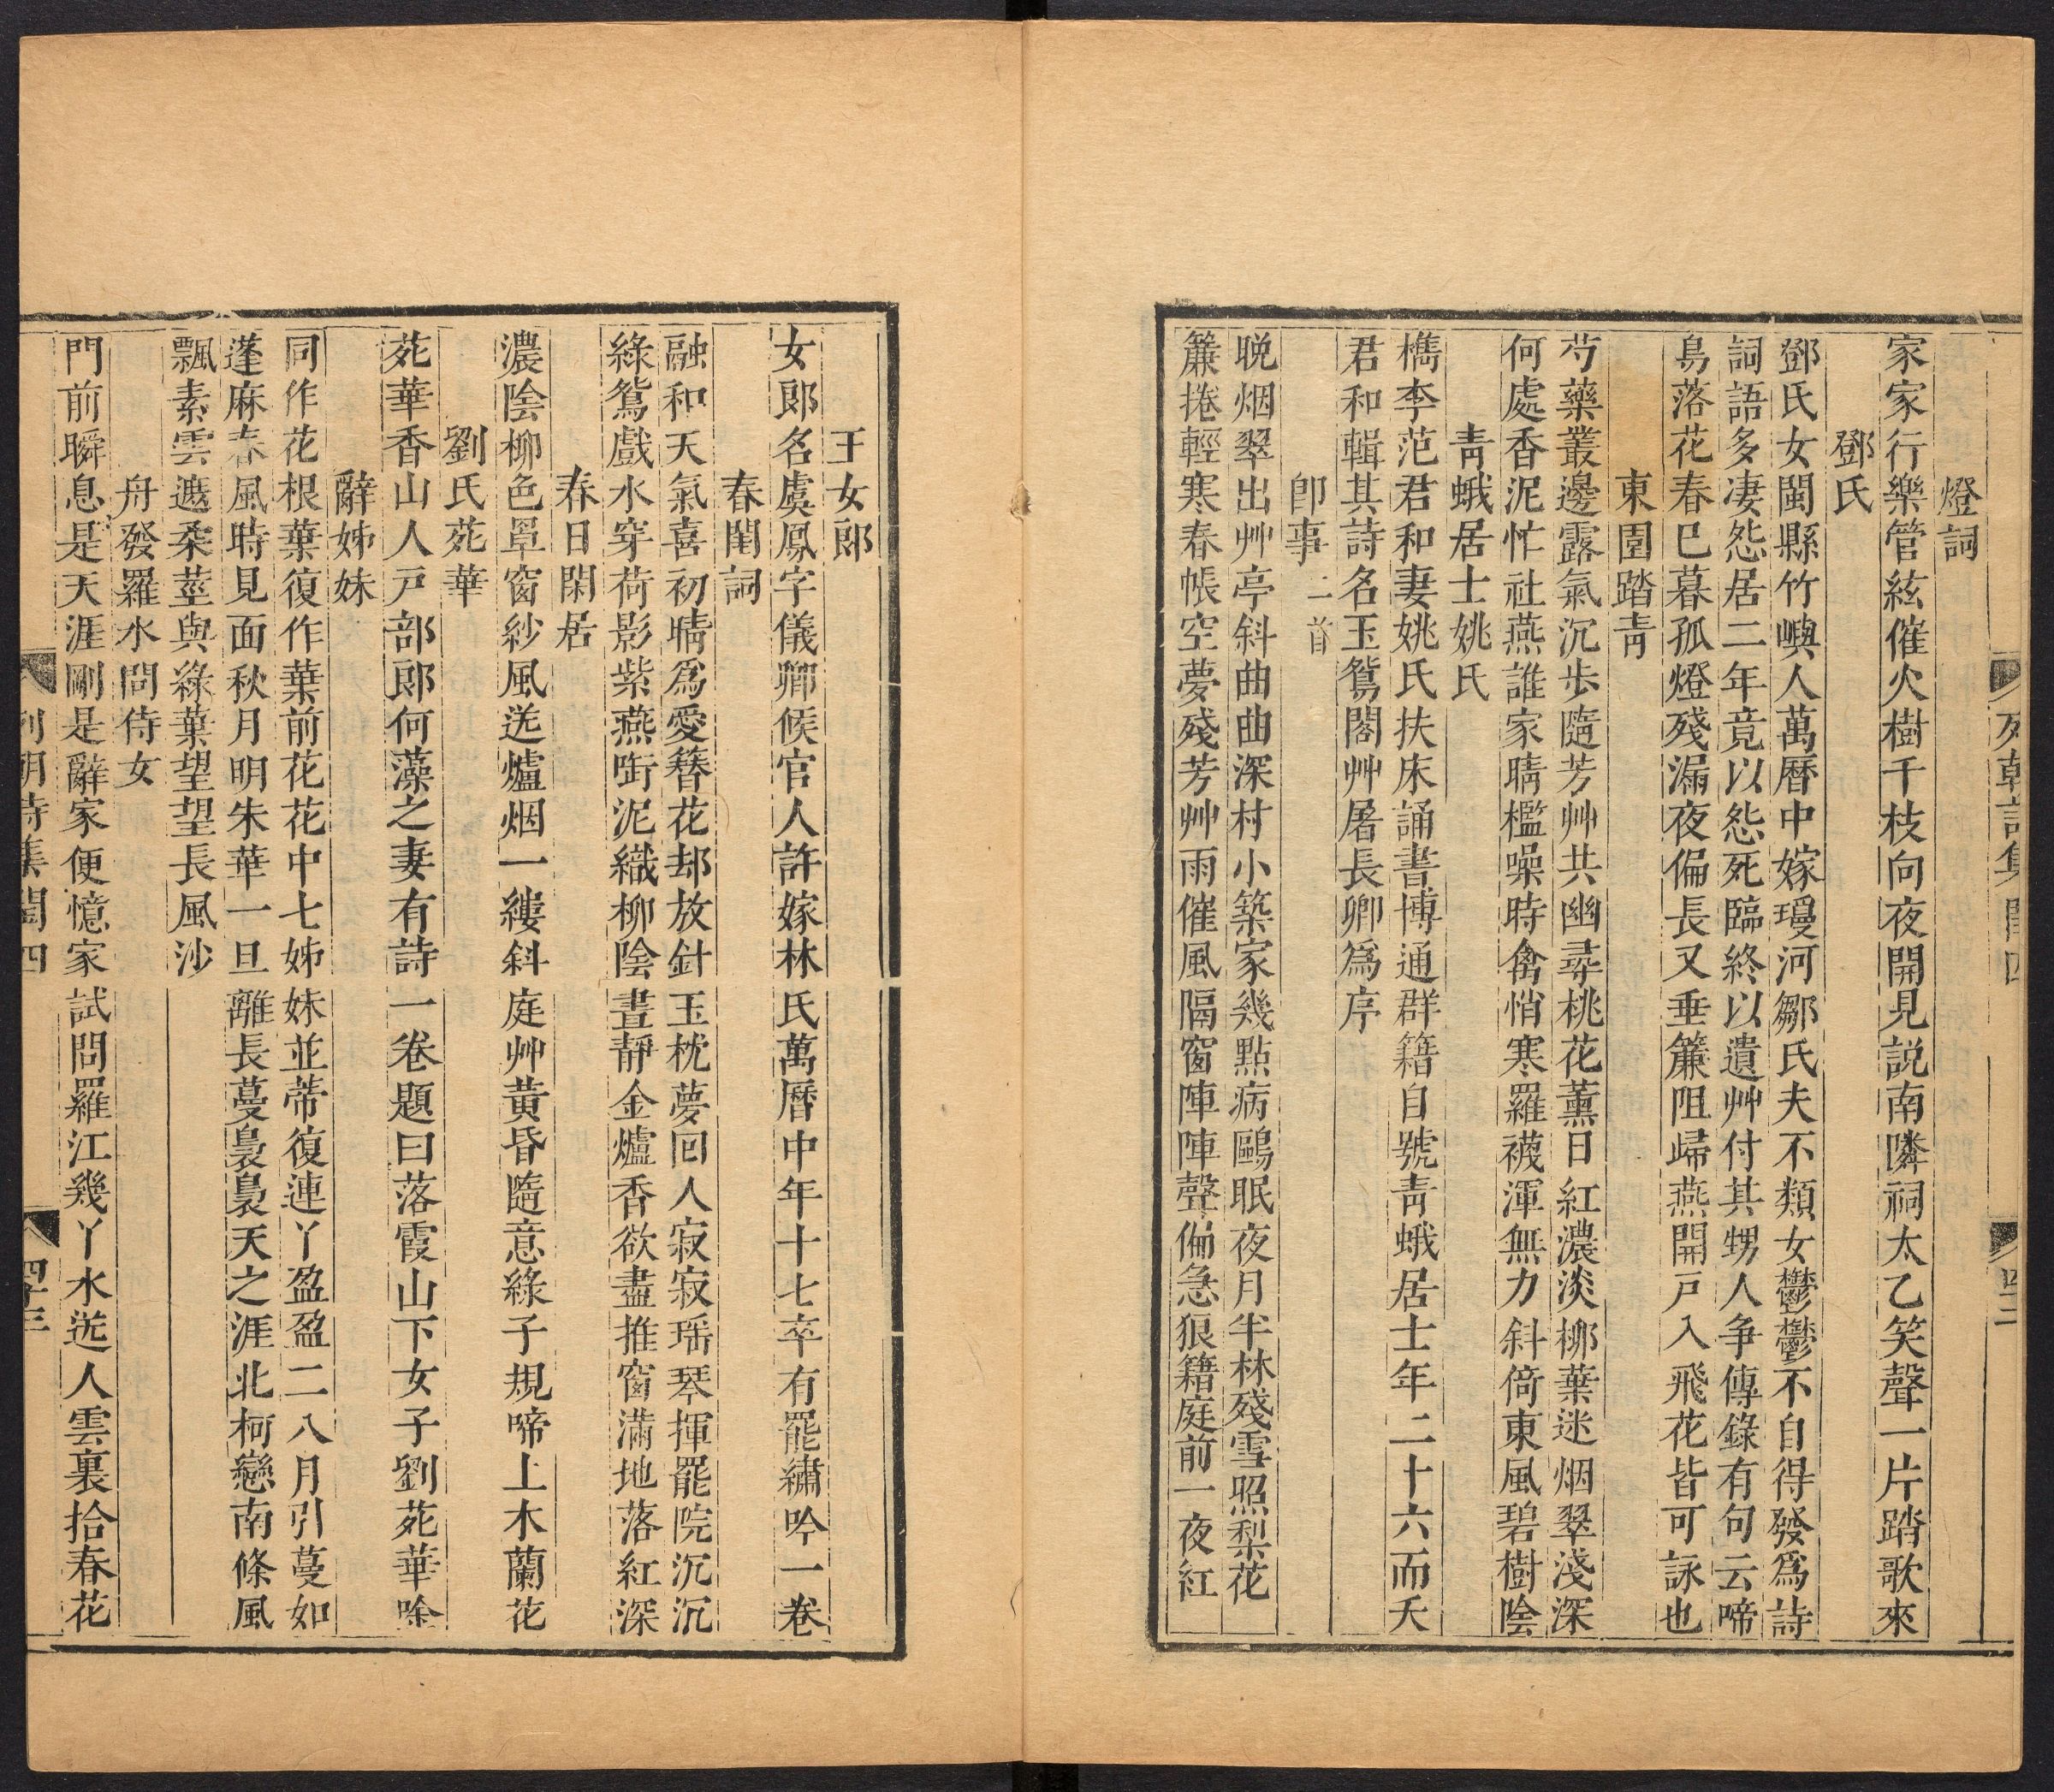 列朝詩集 閏四
四十二
燈詞
家家行樂管絃催火樹千枝向夜開見説南隣祠太乙笑聲一片踏歌來
鄧氏
鄧氏女閩縣竹嶼人萬曆中嫁瓊河鄒氏夫不類女鬱鬱不自得發爲詩
詞語多凄怨居二年竟以怨死臨終以遺艸付其甥人争傳錄有句云啼
鳥落花春已暮孤燈殘漏夜偏長又垂簾阻歸燕開戸入飛花皆可詠也
東園踏靑
芍藥叢邊露氣沉步隨芳艸共幽尋桃花薰日紅濃淡栁葉迷烟翠淺深
何處香泥忙社燕誰家晴檻噪時禽悄寒羅襪渾無力斜倚東風碧樹陰
靑蛾居士姚氏
檇李范君和妻姚氏扶床誦書博通群籍自號靑蛾居士年二十六而夭
君和輯其詩名玉鴛閣艸屠長卿爲序
卽事 二首
晚烟翠出艸亭斜曲曲深村小築家幾點病鷗眠夜月半林殘雪照梨花
簾捲輕寒春帳空夢殘芳艸雨催風隔窗陣陣聲偏急狼籍庭前一夜紅
王女郎
女郎名虞鳳字儀卿候官人許嫁林氏萬曆中年十七卒有罷繡吟一卷
春閨詞
融和天氣喜初晴爲愛簪花却放針玉枕夢回人寂寂瑶琴揮罷院沉沉
綠鴛戲水穿荷影紫燕啣泥織柳陰晝靜金爐香欲盡推窗滿地落紅深
春日閑居
濃陰柳色罩窗紗風送爐烟一縷斜庭艸黃昏隨意綠子規啼上木蘭花
劉氏苑華
苑華香山人戸部郎何藻之妻有詩一卷題曰落霞山下女子劉苑華唫
辭姊妹
同作花根葉復作葉前花花中七姊妹並蒂復連丫盈盈二八月引蔓如
蓬麻春風時見面秋月明朱華一旦離長蔓裊裊天之涯北柯戀南條風
飄素雲遞柔莖與綠葉望望長風沙
舟發羅水問侍女
門前瞬息是天涯剛是辭家便憶家試問羅江幾丫水送人雲裏拾春花
列朝詩集 閏四
四十三